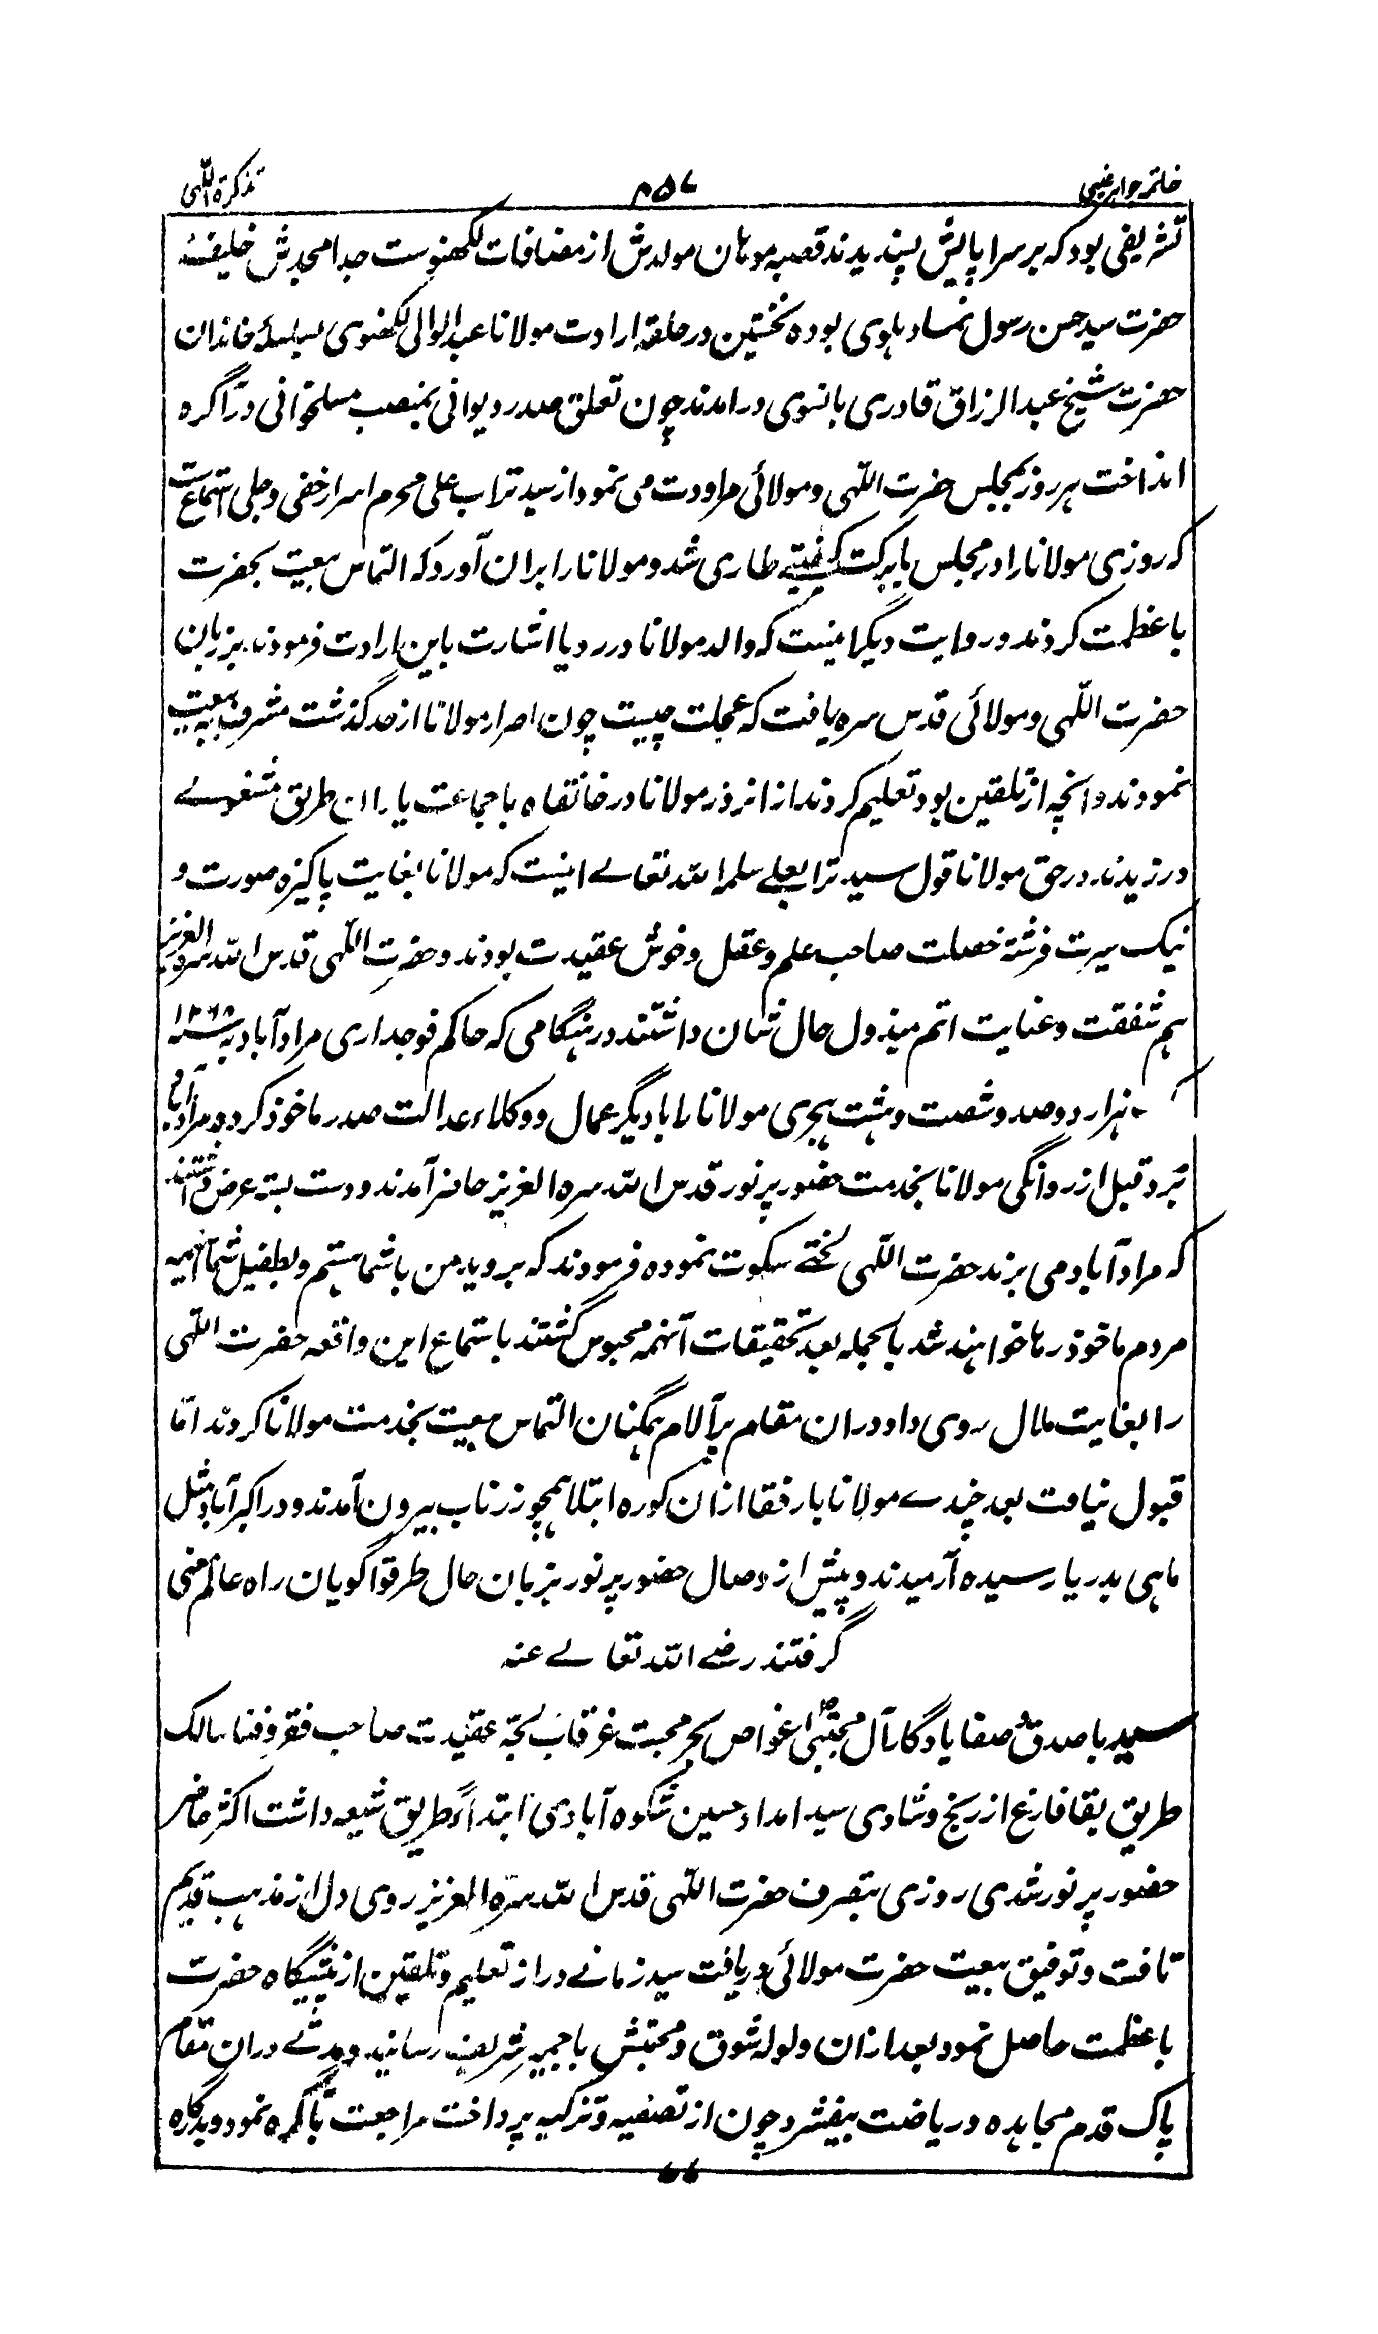 خاتمہ جواہر غیبی ۴۵۷ تذکرۃ اللّٰہی
تشریفی بود کہ بر سراپایش پسندیدند قصبہ موہان مولدش از مضافات لکھنوست جد امجدش خلیفۂ
حضرت سید حسن رسول نما دہلوی بودہ نخستین در حلقۂ ارادت مولانا عبد الوالی لکھنوی سلسلۂ خاندان
حضرت شیخ عبد الرزاق قادری بانسوی درامدند چون تعلق صدر دیوانی بمنصب مسلخوانی در آگرہ
انداخت ہر روز بمجلس حضرت اللّٰہی و مولائی مراودت می نمود از سید تراب علی محرم اسرار خفی و جلی استماعست
کہ روزی مولانا را در مجلس بابرکت کیفیتے طاری شد و مولانا را بران آورد کہ التماس بیعت بحضرت
باعظمت کردند و روایت دیگر اینست کہ والد مولانا در رویا اشارت باین ارادت فرمودند بزبان
حضرت اللّٰہی و مولائی قدس سرہ یافت کہ عجلت چیست چون اصرار مولانا از حد گذشت مشرف بہ بیعت
نمودند و انچہ از تلقین بود تعلیم کردند از انروز مولانا در خانقاہ با جماعت یاران طریق مشغولے
ورزیدند در حق مولانا قول سید ترابعلے سلمہ اللہ تعالے اینست کہ مولانا بغایت پاکیزہ صورت و
نیک سیرت فرشتہ خصلت صاحب علم و عقل و خوش عقیدت بودند و حضرت اللّٰہی قدس اللہ سرہ العزیز
ہم شفقت و عنایت اتم مبذول حال شان داشتند در ہنگامی کہ حاکم فوجداری مرادآباد بہ سنہ ۱۲۶۸
ہزار دو صد و شصت و ہشت ہجری مولانا را با دیگر عمال و وکلاء عدالت صدر ماخوذ کردہ بمرادآباد
برد قبل از روانگی مولانا بخدمت حضور پر نور قدس اللہ سرہ العزیز حاضر آمدند و دست بستہ عرض داشتند
کہ مرادآباد می برند حضرت اللّٰہی لختے سکوت نمودہ فرمودند کہ بروید من با شما ہستم و بطفیل شما اینہمہ
مردم ماخوذ رہا خواہند شد بالجملہ بعد تحقیقات آنہمہ محبوس گشتند باستماع این واقعہ حضرت اللّٰہی
را بغایت ملال روی داد و دران مقام پر آلام ہمگنان التماس بیعت بخدمت مولانا کردند امّا
قبول نیافت بعد چندے مولانا با رفقا ازان کورہ ابتلا ہمچو زر ناب بیرون آمدند و در اکبرآباد مثل
ماہی بدریا رسیدہ آرمیدند و پیش از وصال حضور پر نور بزبان حال طرقوا گویان راہ عالم معنی
گرفتند رضے اللہ تعالے عنہ
سید با صدق و صفا یادگار آل مجتبیٰ غواص بحر محبت غرقاب لجّہ عقیدت صاحب فقر و فنا سالک
طریق بقا فارغ از رنج و شادی سید امداد حسین شکوہ آبادی ابتداءً طریق شیعہ داشت اکثر حاضر
حضور پر نور شدی روزی بتصرف حضرت اللّٰہی قدس اللہ سرہ العزیز روی دل از مذہب قدیم
تافت و توفیق بیعت حضرت مولائی دریافت سید زمانے دراز تعلیم و تلقین از پیشگاہ حضرت
باعظمت حاصل نمود بعد ازان ولولہ شوق و محبتش باجمیر شریف رسانید و مدتے دران مقام
پاک قدم مجاہدہ و ریاضت بیفشرد چون از تصفیہ و تزکیہ پرداخت مراجعت بآگرہ نمود و بدگاہ